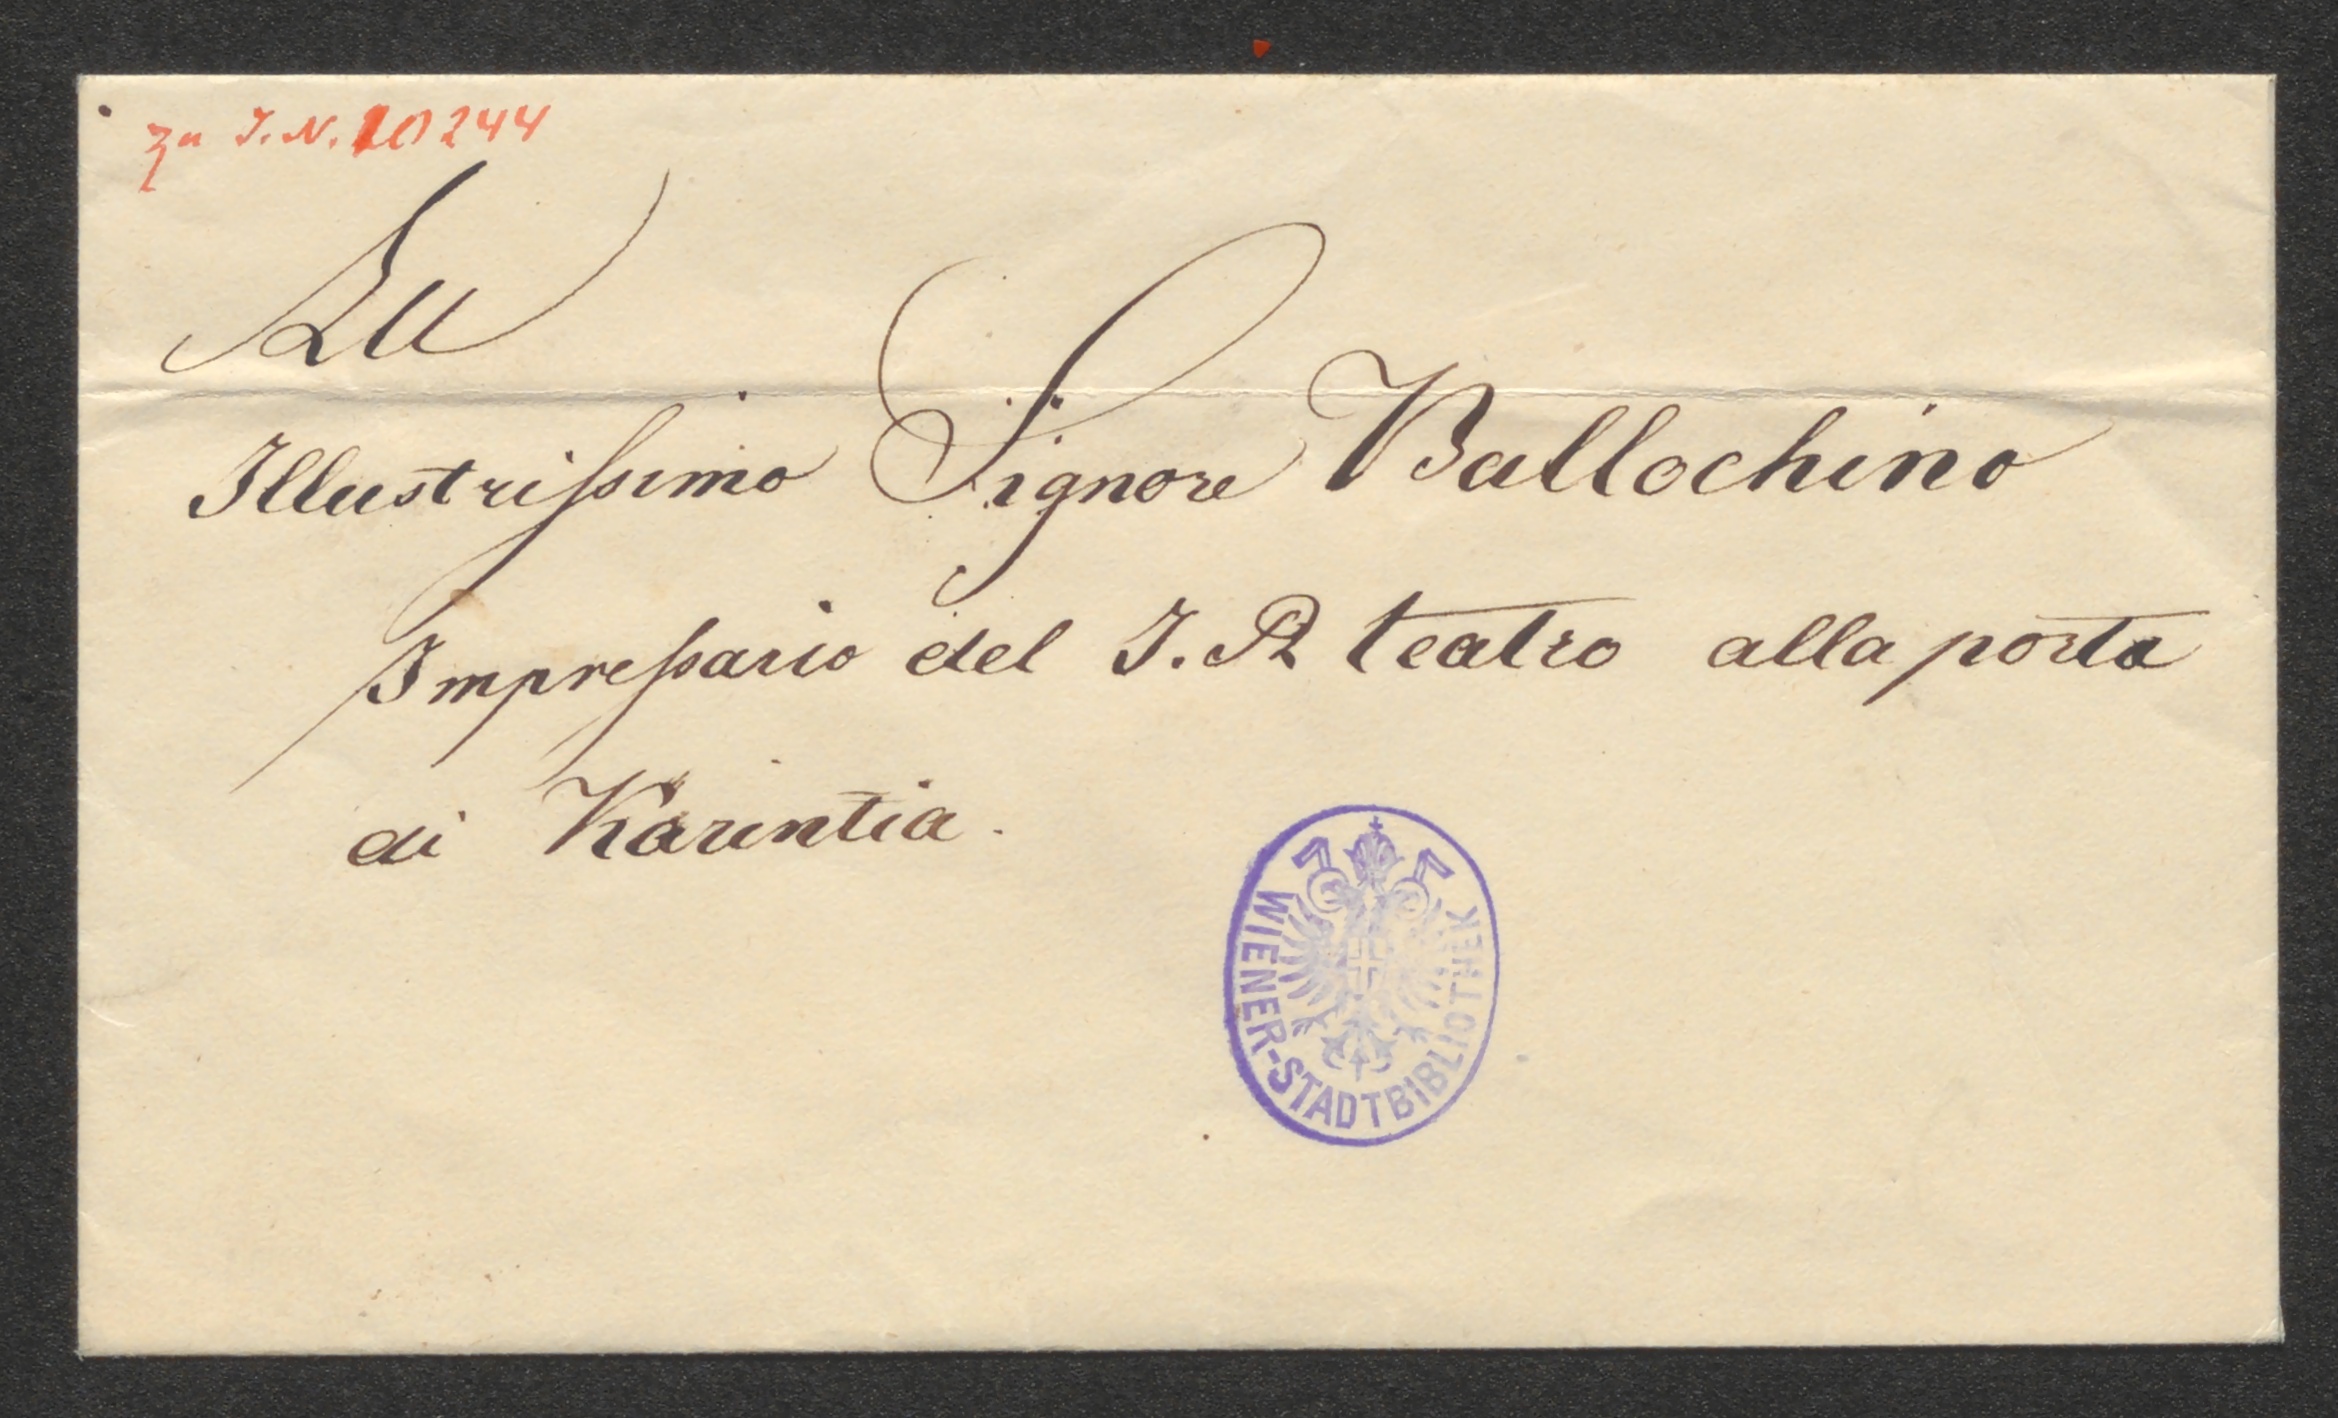 Zu I.N. 10244
Au
Illustrissimo Signore Ballochino
Impressario del I. R teatro alla porta
di Karintia.
WIENER-STADTBIBLIOTHEK